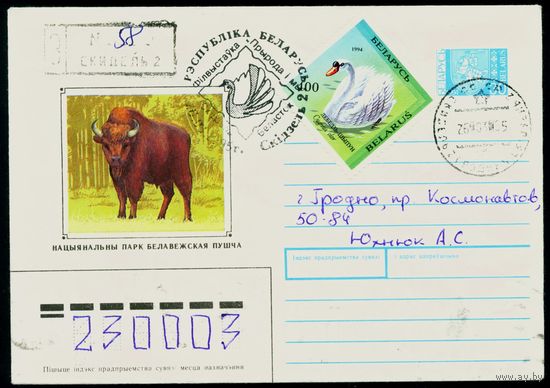 З
№ 58
СКИДЕЛЬ 2
РЭСПУБЛІКА БЕЛАРУСЬ
Філвыстаўка Прырода і мы
Беласток
СКІДЗЕЛЬ 2
400
1994
БЕЛАРУСЬ
BELARUS
НАЦЫЯНАЛЬНЫ ПАРК БЕЛАВЕЖСКАЯ ПУШЧА
г Гродно, пр Космонавтов,
50-84
Юхнюк А.С.
Індэкс прадпрыемства сувязі і адрас адпраўшчыка
230003
Пішыце індэкс прадпрыемства сувязі месца назначэння
www.ay.by